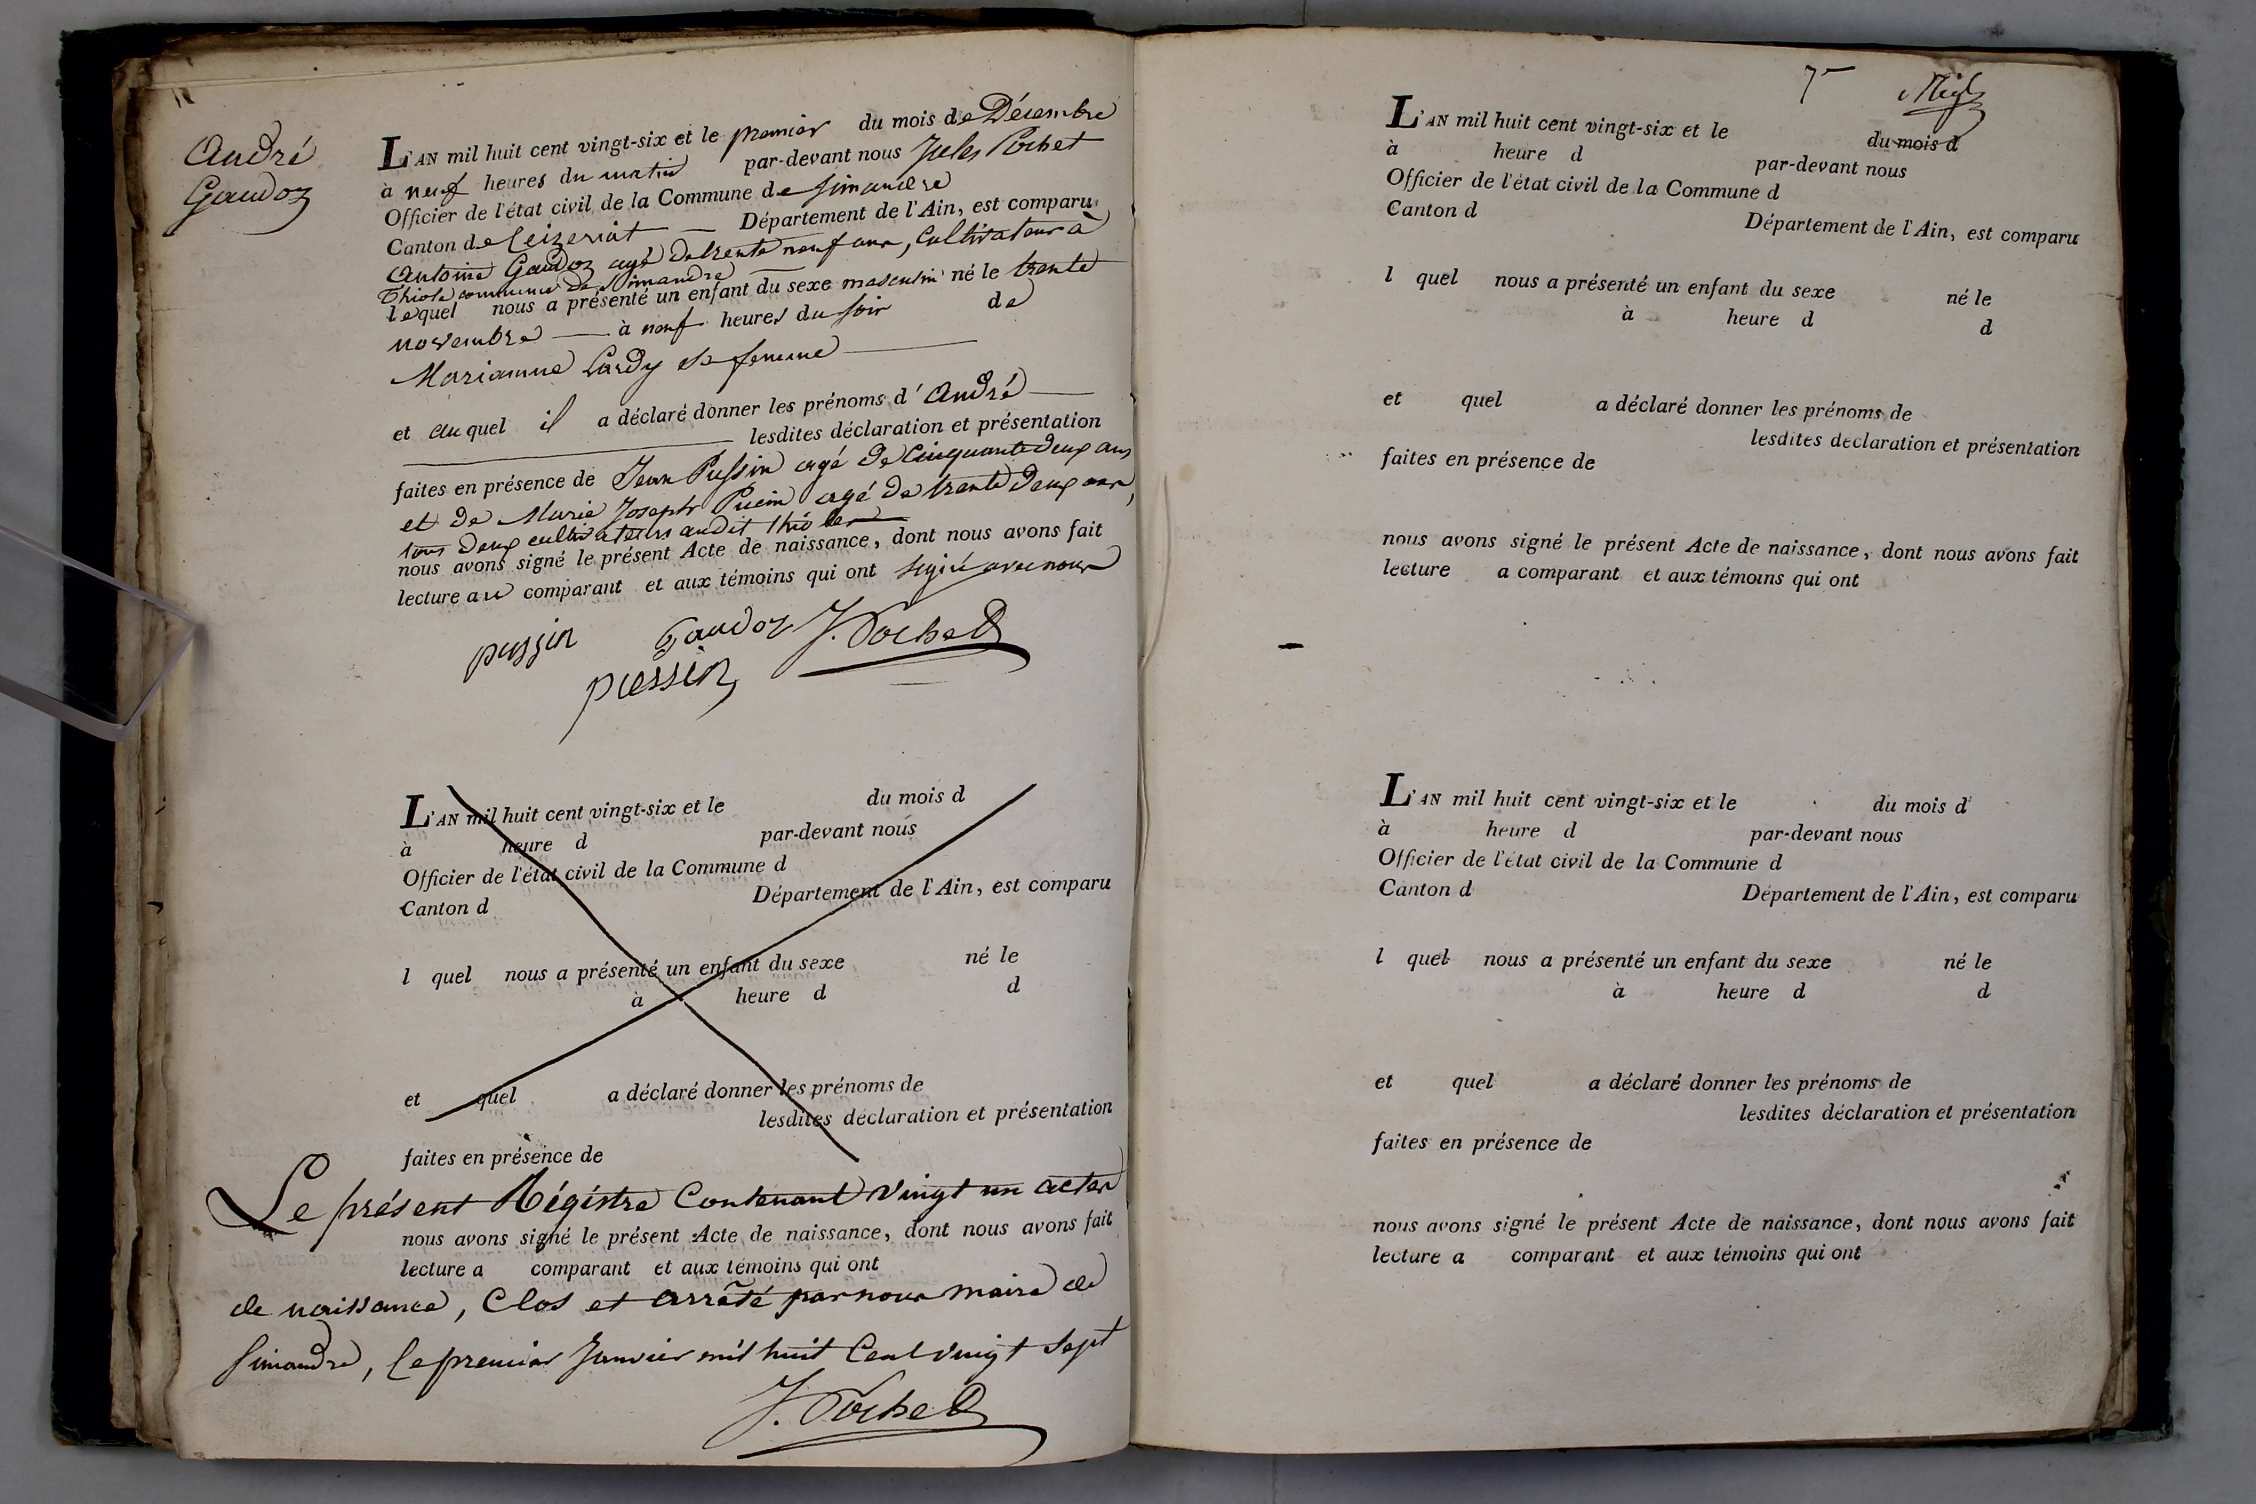 André
Gaudoz
L'AN mil huit cent vingt-six et le premier du mois de Décembre
à neuf heures du matin par-devant nous Jules Pochet
Officier de l'état civil de la Commune de Simandre
Canton de Ceizeriat Département de l'Ain, est comparu
Antoine Gaudoz agé de trente neuf ans, Cultivateur à
Thiole commune de Simandre
lequel nous a présenté un enfant du sexe masculin né le trente
novembre à neuf heures du soir de
Marianne Lardy sa femme
et au quel il a déclaré donner les prénoms d'André
lesdites déclaration et présentation
faites en présence de Jean Pussin agé de Cinquante deux ans
et de Marie Joseph agé de trente deux ans,
tous deux cultivateurs audit
nous avons signé le présent Acte de naissance, dont nous avons fait
lecture au comparant et aux témoins qui ont signé avec nous
pussin Gaudoz J. Pochet
pussin
L'AN mil huit cent vingt-six et le du mois d
à heure d par-devant nous
Officier de l'état civil de la Commune d
Canton d Département de l'Ain, est comparu
l quel nous a présenté un enfant du sexe né le
à heure d d
et quel a déclaré donner les prénoms de
lesdites déclaration et présentation
faites en présence de
Le présent Régistre Contenant vingt un actes
nous avons signé le présent Acte de naissance, dont nous avons fait
lecture a comparant et aux témoins qui ont
de naissance, Clos et arrêté par nous maire de
Simandre, le premier Janvier mil huit Cent vingt sept
J. Pochet
7
L'AN mil huit cent vingt-six et le du mois d
à heure d par-devant nous
Officier de l'état civil de la Commune d
Canton d Département de l'Ain, est comparu
l quel nous a présenté un enfant du sexe né le
à heure d d
et quel a déclaré donner les prénoms de
lesdites déclaration et présentation
faites en présence de
nous avons signé le présent Acte de naissance, dont nous avons fait
lecture a comparant et aux témoins qui ont
L'AN mil huit cent vingt-six et le du mois d
à heure d par-devant nous
Officier de l'état civil de la Commune d
Canton d Département de l'Ain, est comparu
l quel nous a présenté un enfant du sexe né le
à heure d d
et quel a déclaré donner les prénoms de
lesdites déclaration et présentation
faites en présence de
nous avons signé le présent Acte de naissance, dont nous avons fait
lecture a comparant et aux témoins qui ont